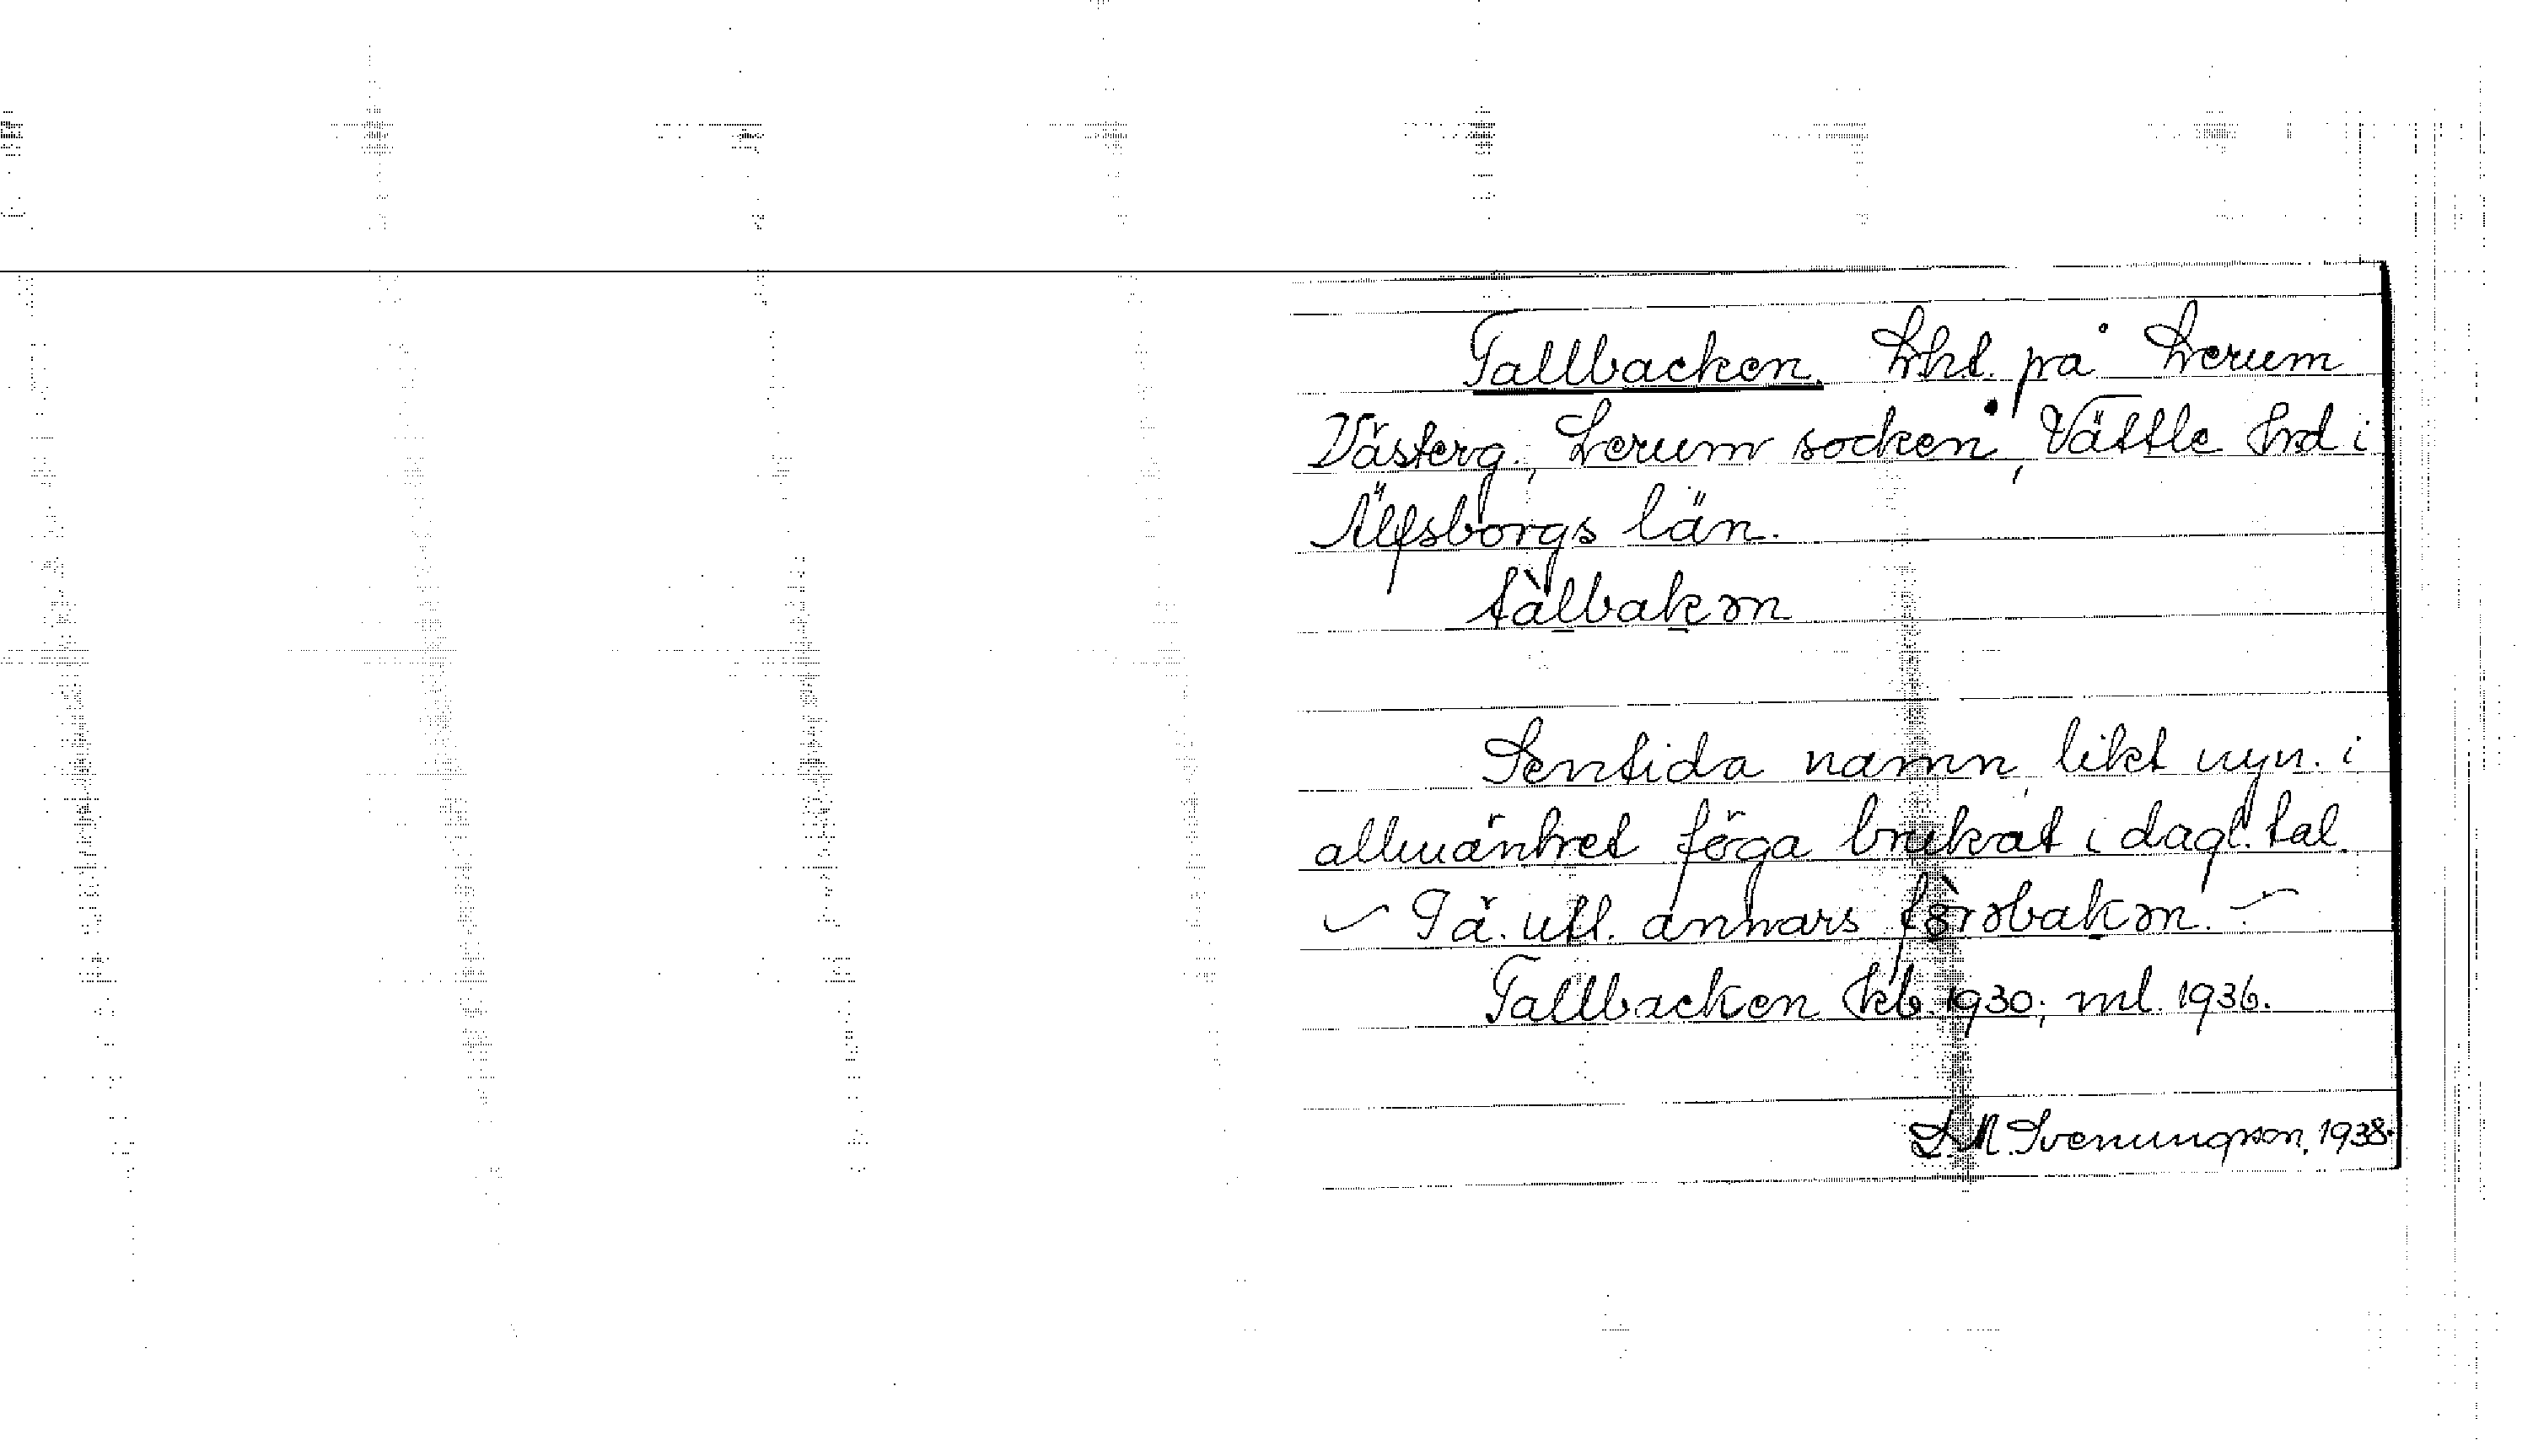 Tallbacken. Lht. på Lerum
Västerg., Lerum socken, Vättle hrd i
Älfsborgs län.
tàlbakən
Sentida namn, likt nyn. i
allmänhet föga brukat i dagl. tal.
Tä. utt. annars fòrəbakən.
Tallbacken kb. 1930; ml. 1936.
S. M. Svenungsson, 1938.